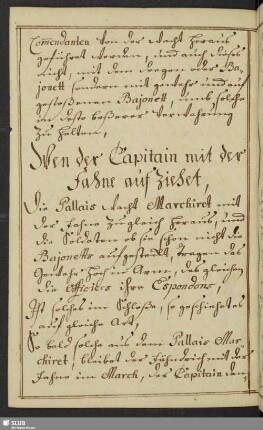 Comendanten von der Wacht heraus
geführet werden, und auch dieses
nicht, mit dem Degen oder Ba,,
jonett sondern mit gewehr und auf
gestoßenen Bajonett, umb solche
in desto beßerer Verwahrung
zu halten,
Wen der Capitain mit der
Fahne auf ziehet,
Die Pallais Wacht Marchiret mit
der Fahne zugleich heraus, und
die Soldaten ob sie schon nicht die
Bajonetts aufgesteckt, tragen das
Gewehr hoch im Arm, des gleichen
die officiers ihre Espondons,
Ist solches im Schloße, so geschiehet es
auf gleiche Art,
So bald solche aus dem Pallais Mar,,
chiret, bleibet der Fähndrich mit der
Fahne im March, der Capitain den,,
SLUB